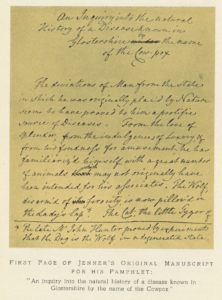 An Inquiry into the natural
History of a Disease known in
Glostershire by the name
of the Cow-pox
The deviations of Man from the state
in which he was originally plac'd by Nature
seem to have proved to him a prolific
source of Diseases. From the love of
splendor, from the indulgences of luxury, &
from his fondness for amusement, he has
familiaris'd himself with a great number
of animals, which may not originally have
been intended for his associates. The Wolf,
disarm'd of ferocity is now pillow'd in
the lady's lap * The Cat, the little Tyger of
* The late Mr. John Hunter proved by experiments
that the Dog is the Wolf in a degenerated state.
FIRST PAGE OF JENNER'S ORIGINAL MANUSCRIPT
FOR HIS PAMPHLET:
"An inquiry into the natural history of a disease known in
Glostershire by the name of the Cowpox"